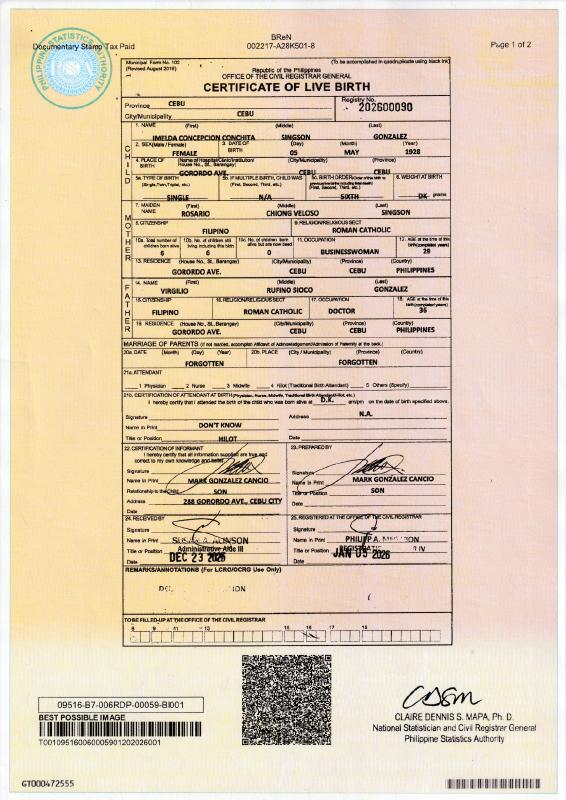 Documentary Stamp Tax Paid
BReN
002217-A28K501-8
Page 1 of 2
PHILIPPINE STATISTICS AUTHORITY
Municipal Form No. 102
(Revised August 2016)
(To be accomplished in quadruplicate using black ink)
Republic of the Philippines
OFFICE OF THE CIVIL REGISTRAR GENERAL
CERTIFICATE OF LIVE BIRTH
Province CEBU
Registry No.
202600090
City/Municipality CEBU
CHILD
1. NAME (First) (Middle) (Last)
IMELDA CONCEPCION CONCHITA SINGSON GONZALEZ
2. SEX (Male / Female) 3. DATE OF BIRTH (Day) (Month) (Year)
FEMALE 05 MAY 1928
4. PLACE OF BIRTH (Name of Hospital/Clinic/Institution/ House No., St., Barangay) (City/Municipality) (Province)
GORORDO AVE. CEBU CEBU
5a. TYPE OF BIRTH (Single, Twin, Triplet, etc.) 5b. IF MULTIPLE BIRTH, CHILD WAS (First, Second, Third, etc.) 5c. BIRTH ORDER (First, Second, Third, etc.) 6. WEIGHT AT BIRTH
SINGLE N/A SIXTH DK grams
MOTHER
7. MAIDEN NAME (First) (Middle) (Last)
ROSARIO CHIONG VELOSO SINGSON
8. CITIZENSHIP 9. RELIGION/RELIGIOUS SECT
FILIPINO ROMAN CATHOLIC
10a. Total number of children born alive 10b. No. of children still living including this birth 10c. No. of children born alive but are now dead 11. OCCUPATION 12. AGE at the time of this birth (completed years)
6 6 0 BUSINESSWOMAN 29
13. RESIDENCE (House No., St., Barangay) (City/Municipality) (Province) (Country)
GORORDO AVE. CEBU CEBU PHILIPPINES
FATHER
14. NAME (First) (Middle) (Last)
VIRGILIO RUFINO SIOCO GONZALEZ
15. CITIZENSHIP 16. RELIGION/RELIGIOUS SECT 17. OCCUPATION 18. AGE at the time of this birth (completed years)
FILIPINO ROMAN CATHOLIC DOCTOR 36
19. RESIDENCE (House No., St., Barangay) (City/Municipality) (Province) (Country)
GORORDO AVE. CEBU CEBU PHILIPPINES
MARRIAGE OF PARENTS (If not married, accomplish Affidavit of Acknowledgement/Admission of Paternity at the back.)
20a. DATE (Month) (Day) (Year) 20b. PLACE (City / Municipality) (Province) (Country)
FORGOTTEN FORGOTTEN
21a. ATTENDANT
1 Physician 2 Nurse 3 Midwife 4 Hilot (Traditional Birth Attendant) 5 Others (Specify)
21b. CERTIFICATION OF ATTENDANT AT BIRTH (Physician, Nurse, Midwife, Traditional Birth Attendant/Hilot, etc.)
I hereby certify that I attended the birth of the child who was born alive at D.K. am/pm on the date of birth specified above.
Signature Address N.A.
Name in Print DON'T KNOW
Title or Position HILOT Date
22. CERTIFICATION OF INFORMANT
I hereby certify that all information supplied are true and
correct to my own knowledge and belief.
Signature
Name in Print MARK GONZALEZ CANCIO
Relationship to the Child SON
Address 288 GORORDO AVE., CEBU CITY
Date
23. PREPARED BY
Signature
Name in Print MARK GONZALEZ CANCIO
Title or Position SON
Date
24. RECEIVED BY
Signature
Name in Print
Title or Position Administrative Aide III
Date DEC 23 2025
25. REGISTERED AT THE OFFICE OF THE CIVIL REGISTRAR
Signature
Name in Print
Title or Position IV
Date JAN 05 2026
REMARKS/ANNOTATIONS (For LCRO/OCRG Use Only)
TO BE FILLED-UP AT THE OFFICE OF THE CIVIL REGISTRAR
8 9 11 13 15 16 17 15
09516-B7-006RDP-00059-BI001
BEST POSSIBLE IMAGE
T001095160060005901202026001
CLAIRE DENNIS S. MAPA, Ph. D.
National Statistician and Civil Registrar General
Philippine Statistics Authority
GT000472555